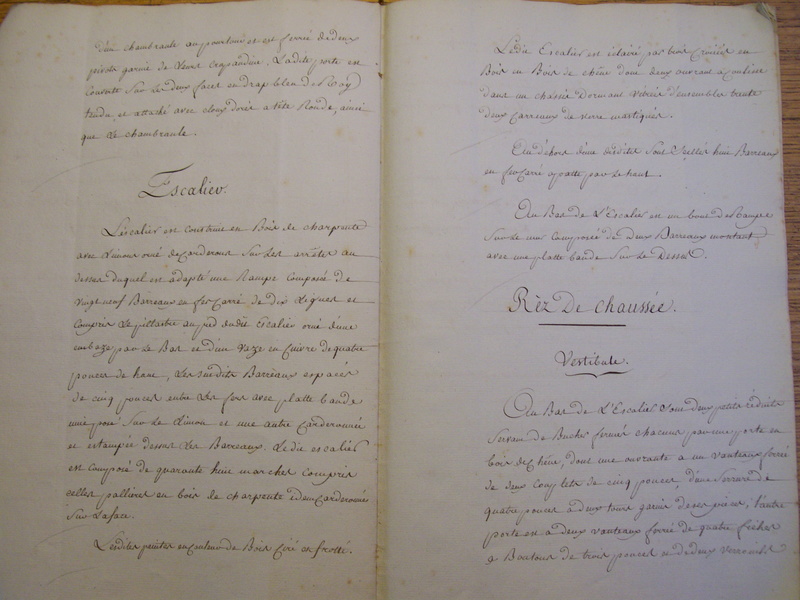 d'un chambranle au pourtour et est ferrée de deux
pivots garnie de leurs crapaudine. Ladite porte est
couverte sur les deux faces en drap bleu de Roy
tendu, et attaché avec clous dorés a tête Ronde, ainsi
que Le chambranle.
Escalier.
L'escalier est construit en Bois de charpente
avec Limon orné de Carderons Sur Les arrêtes au
dessus duquel est adapté une Rampe Composé de
vingt neuf Barreaux en fer Carré de dix Lignes et
Compris Le pillastre au pied dudit Escalier orné d'une
embaze par Le Bas et d'un Vaze en Cuivre de quatre
pouces de haut, Les susdits Barreaux espacés
de cinq pouces entre Les fers avec platte bande
une posé Sur Le Limon et une autre Carderonnée
et estampée dessus Les Barreaux. Ledit escalier
est Composé de quarante huit marches Compris
celles pallières en bois de charpente idem Carderonné
Sur La face.
Lesdites peintes en Couleur de Bois Ciré et frotté.
Ledit Escalier est éclairé par trois Croisées en
Bois en Bois de chêne dont deux ouvrant a Coulisse
dans un chassis Dormant Vitrées d'ensemble trente
deux Carreaux de verre mastiqués.
Au dehors d'une desdites Sont Scellés huit Barreaux
en fer Carré apatte par Le haut.
Au Bas de L'Escalier est un bout de Rampe
Sur Le mur Composée de deux Barreaux montant
avec une platte bande Sur Le Dessus.
Rèz De chaussée.
Vestibule.
Au Bas de L'Escalier Sont deux petits réduits
Servant de Bucher fermés chacun par une porte en
bois de chêne, dont une ouvrante a un Vanteau ferré
de deux Couplets de Cinq pouces, d'une Serrure de
quatre pouces a deux tours garnie de ses pièces, l'autre
porte ou a deux vanteaux ferré de quatre fiches
a Boutons de trois pouces et de deux verroux